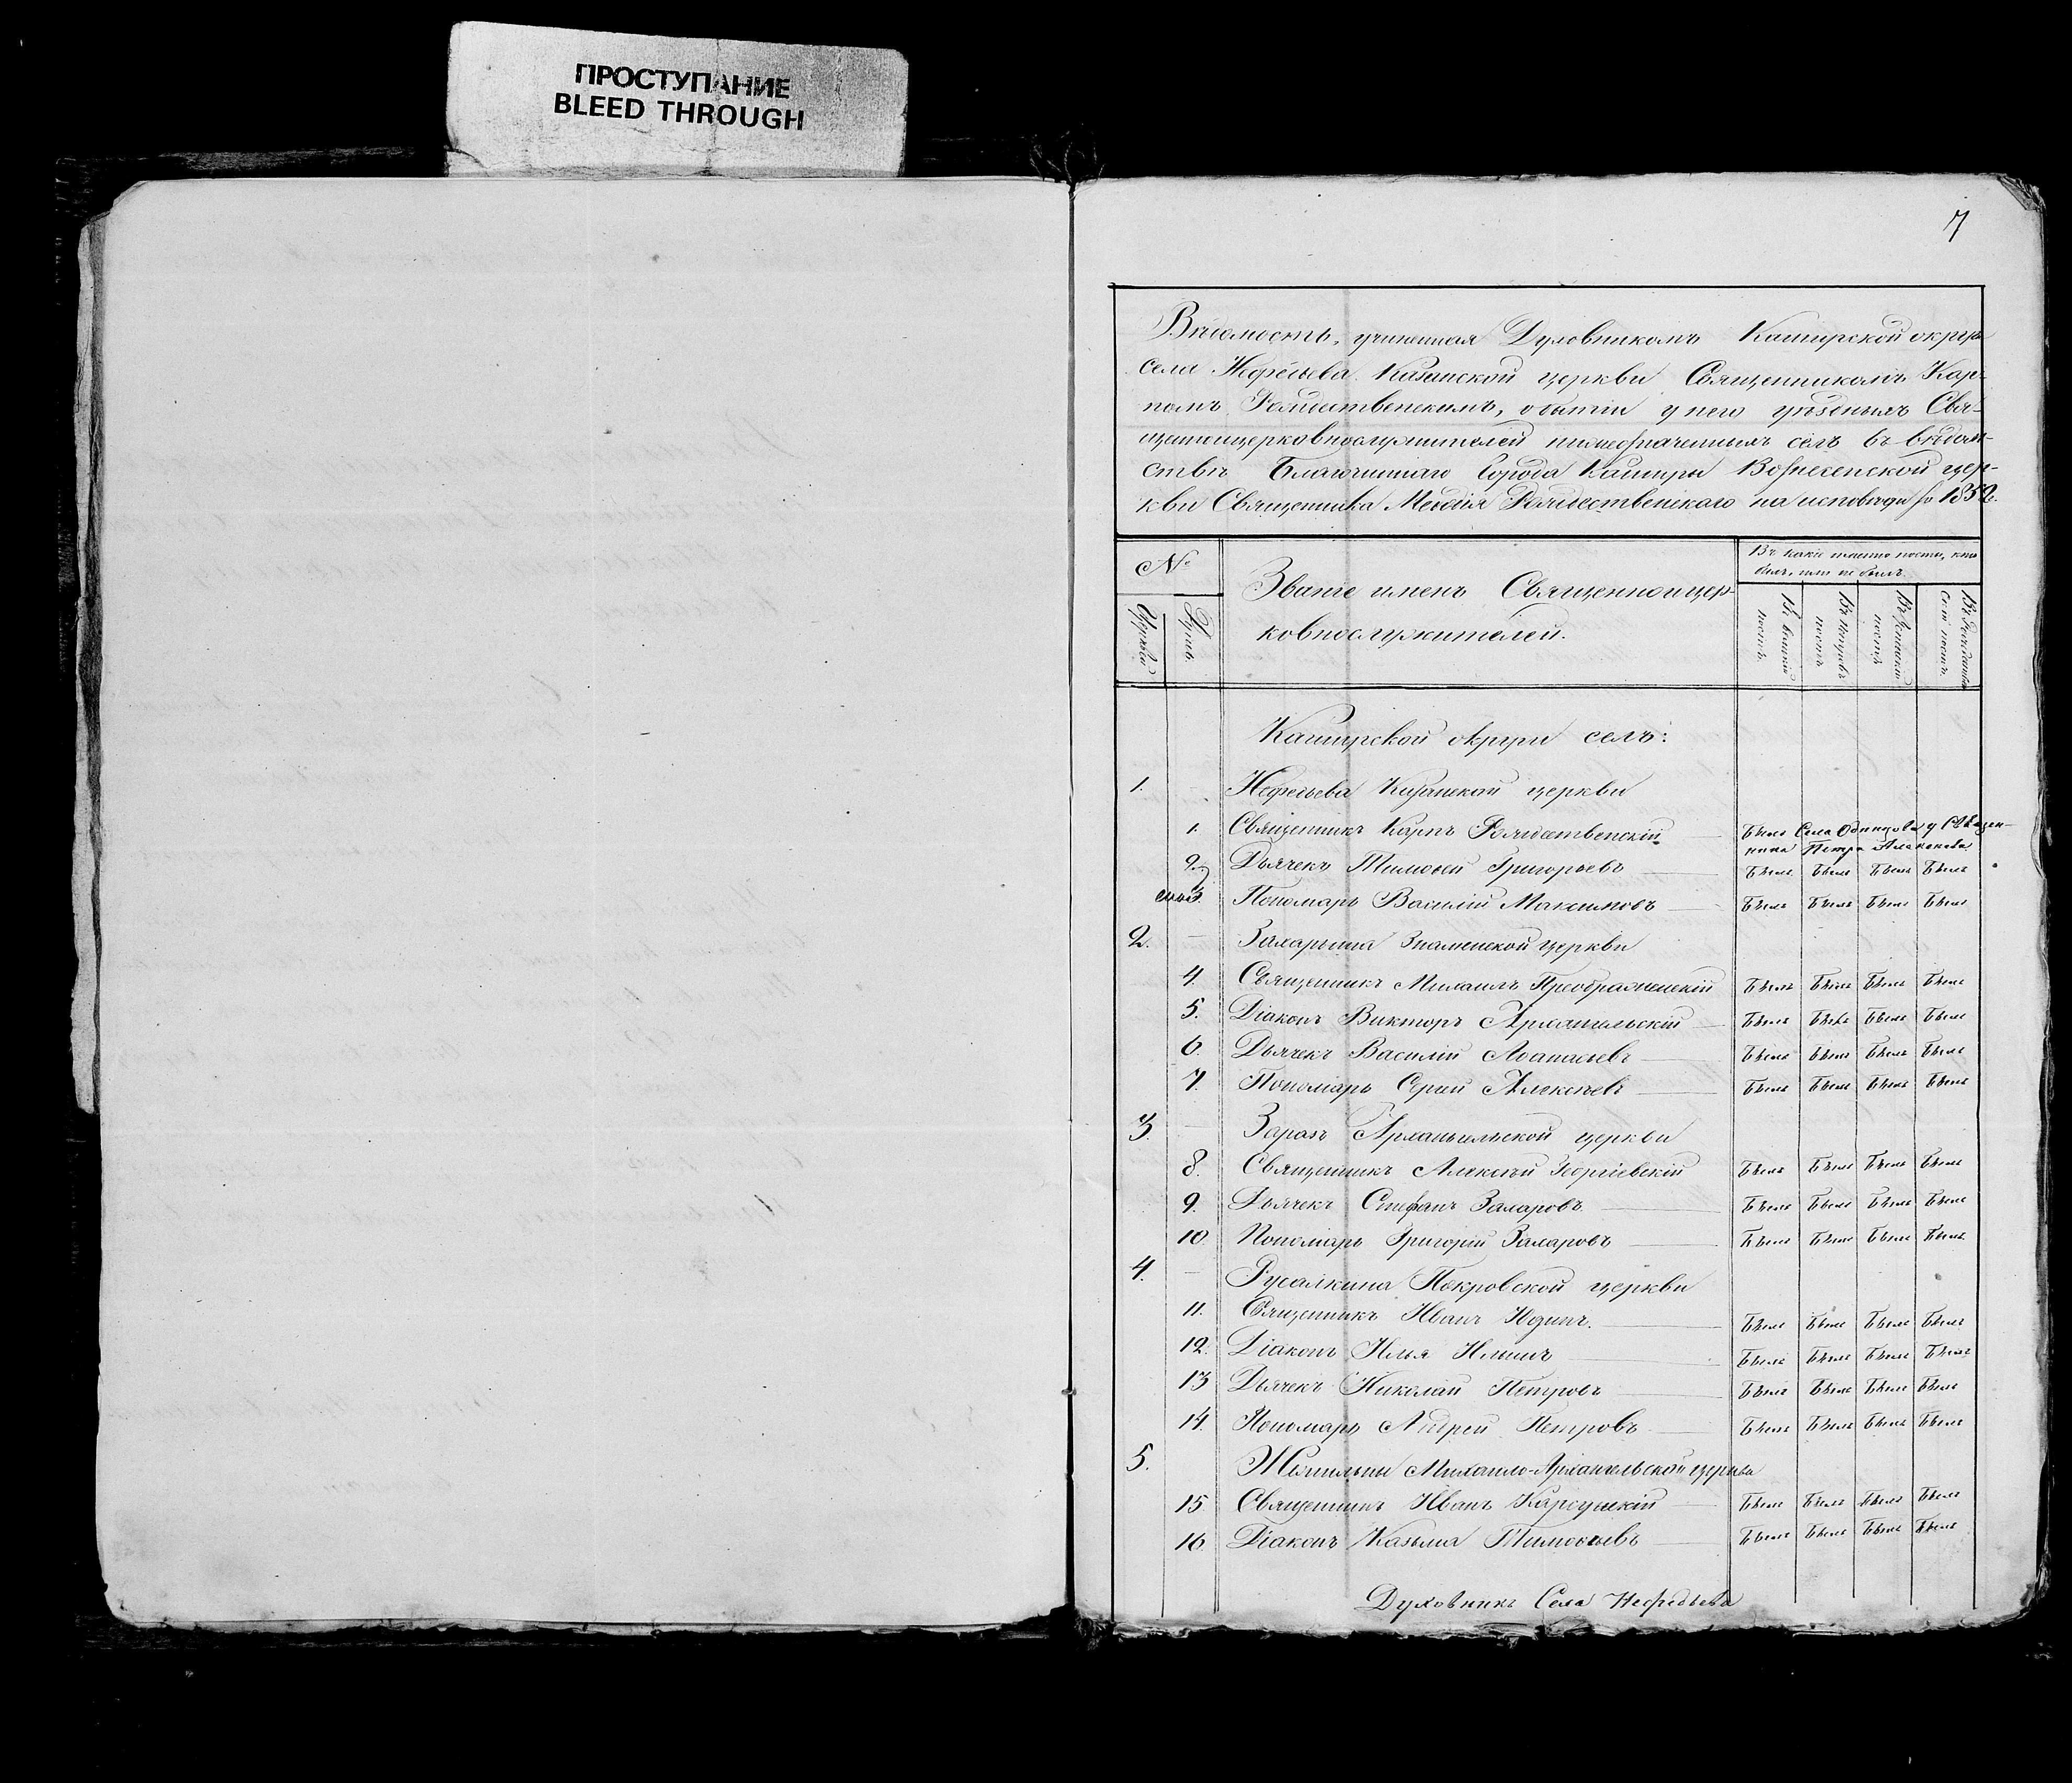 ПРОСТУПАНИЕ
BLEED THROUGH
7
Вѣдомость, учиненная Духовникомъ Каширской округи
села Нефедьева Казанской церкви Священникомъ Кар-
помъ Рождественскимъ, о бытіи у него уѣздныхъ Свя-
щенноцерковнослужителей нижеозначенныхъ селъ въ вѣдом-
ствѣ Благочиннаго Города Каширы Вознесенской цер-
кви Священника Меѳодія Рождественскаго на исповѣди 1852
№
Церквей
Душъ
Званіе именъ Священноицер-
ковнослужителей.
Въ какіе именно посты, кто
былъ, или не былъ.
Въ великій
постъ.
Въ Петровъ
постъ
Въ Успенскій
постъ
Въ Рождествен-
скій постъ.
Каширской округи селъ:
1. Нефедьева Казанской церкви
1. Священникъ Карпъ Рождественскій Былъ Села Одинцова у Священ-
ника Петра Алексѣева
2. Дьячекъ Тимоѳей Григорьевъ Былъ Былъ Былъ Былъ
3. Пономарь Василій Максимовъ Былъ Былъ Былъ Былъ
2. Захарьина Знаменской церкви
4. Священникъ Михаилъ Преображенскій Былъ Былъ Былъ Былъ
5. Діаконъ Викторъ Архангельскій Былъ Былъ Былъ Былъ
6. Дьячекъ Василій Аѳанасьевъ Былъ Былъ Былъ Былъ
7. Пономарь Сергей Алексѣевъ Былъ Былъ Былъ Былъ
3. Заразъ Архангельской церкви
8. Священникъ Алексѣй Георгіевскій Былъ Былъ Былъ Былъ
9. Дьячекъ Стефанъ Захаровъ Былъ Былъ Былъ Былъ
10 Пономарь Григорій Захаровъ Былъ Былъ Былъ Былъ
4. Русалкина Покровской церкви
11. Священникъ Иванъ Юдинъ. Былъ Былъ Былъ Былъ
12. Діаконъ Илья Ильинъ Былъ Былъ Былъ Былъ
13 Дьячекъ Николай Петровъ Былъ Былъ Былъ Былъ
14. Пономарь Андрей Петровъ Былъ Былъ Былъ Былъ
5. Михаило-Архангельской церкви
15 Священникъ Иванъ Былъ Былъ Былъ Былъ
16 Діаконъ Казьма Тимоѳеевъ Былъ Былъ Былъ Былъ
Духовникъ Села Нефедьева